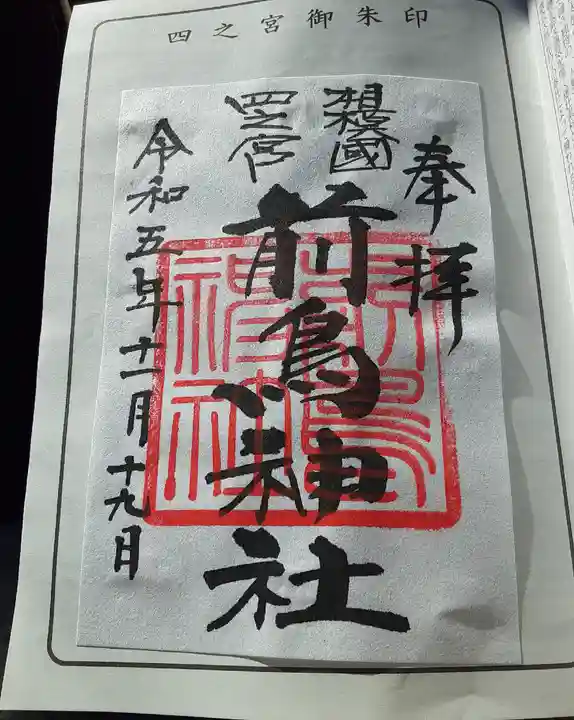 四之宮御朱印
奉拝
相模國
四之宮
前鳥神社
令和五年十一月十九日